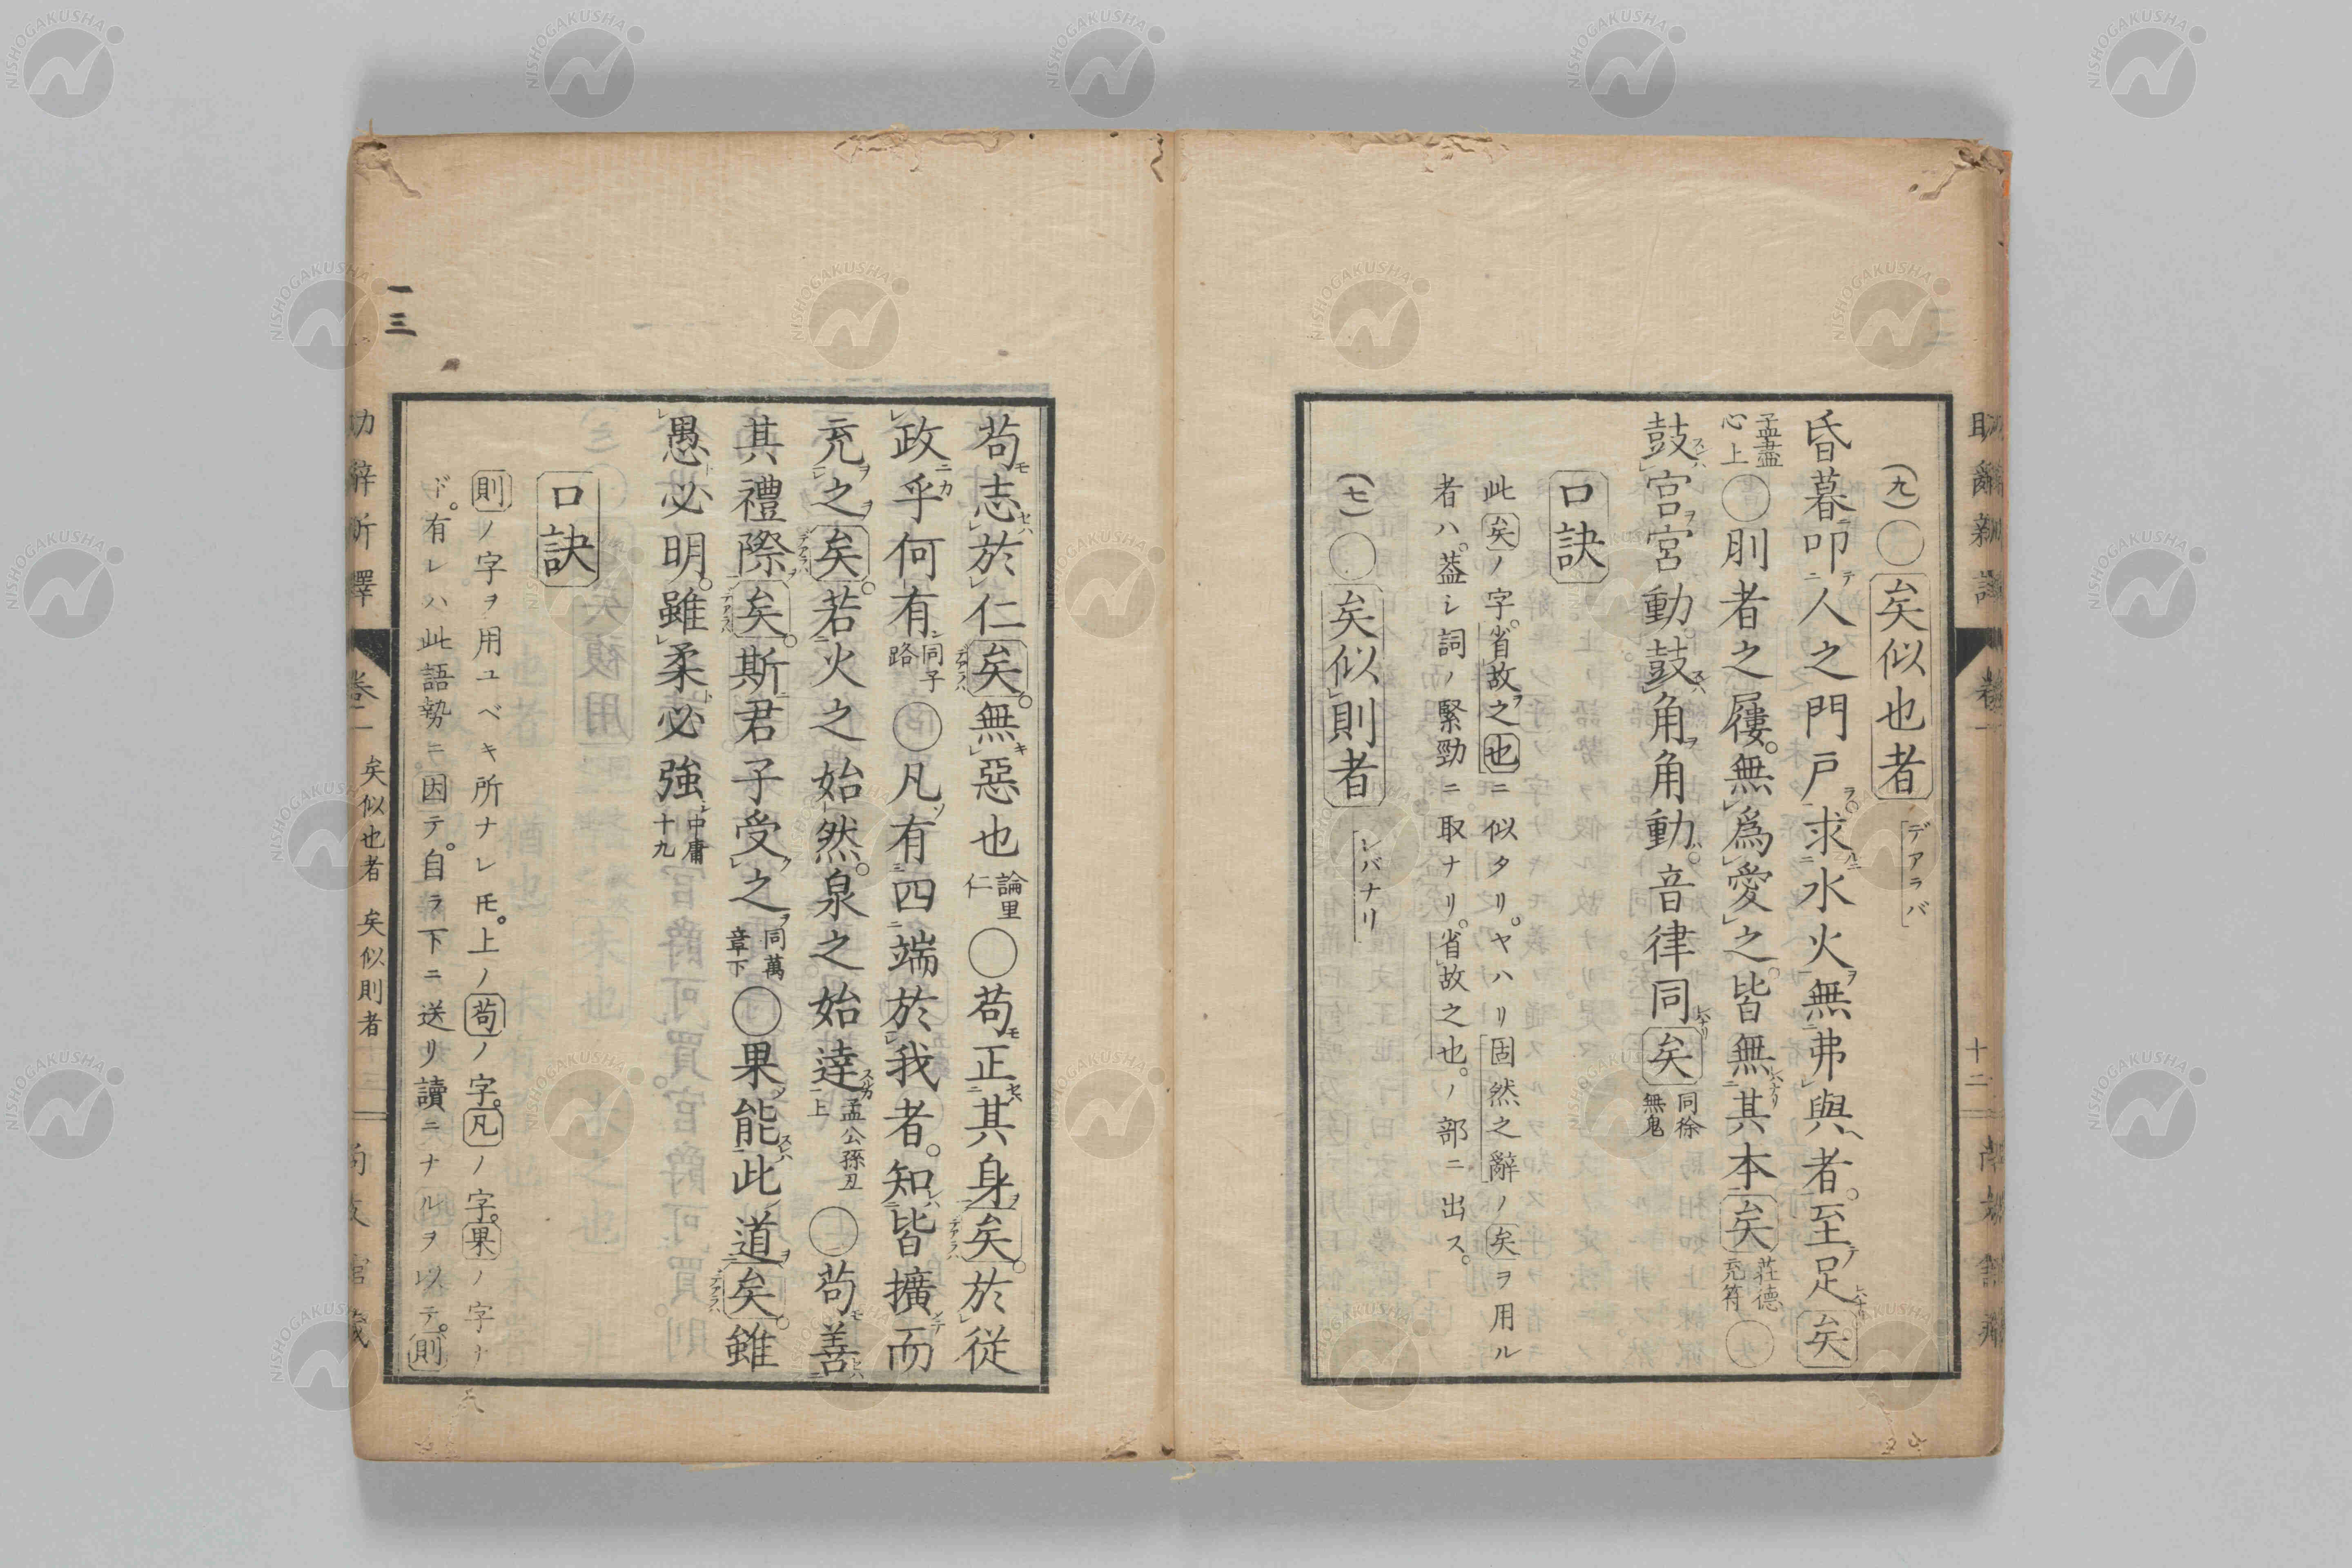 (九)〇矣似也者 デアラバ
昏暮叩人之門戸求水火無弗與者。至足矣
孟盡心上〇刖者之屨。無爲愛之。皆無其本矣 荘德充符〇
鼓宮宮動鼓角角動音律同矣 同徐無鬼
口訣
此矣ノ字。省故之也ニ似タリ。ヤハリ固然之辭ノ矣ヲ用ル
者ハ。蓋シ詞ノ緊勁ニ取ナリ。省故之也。ノ部ニ出ス。
(七)〇矣似則者 レバナリ
苟志於仁矣。無惡也 論里仁〇苟正其身矣。於從
政乎何有 同子路〇凡有四端於我者。知皆擴而
充之矣。若火之始然。泉之始達 孟公孫丑上〇苟善
其禮際矣。斯君子受之 同萬章下〇果能此道矣。雖
愚必明。雖柔必強 中庸十九
口訣
則ノ字ヲ用ユベキ所ナレ𪜈。上ノ苟ノ字。凡ノ字。果ノ字ナ
ド。有レハ此語勢ニ。因テ。自ラ下ニ送リ讀ニナルヲ以テ。則
一三
卷一 矣似也者 矣似則者
十二
NISHOGAKUSHA